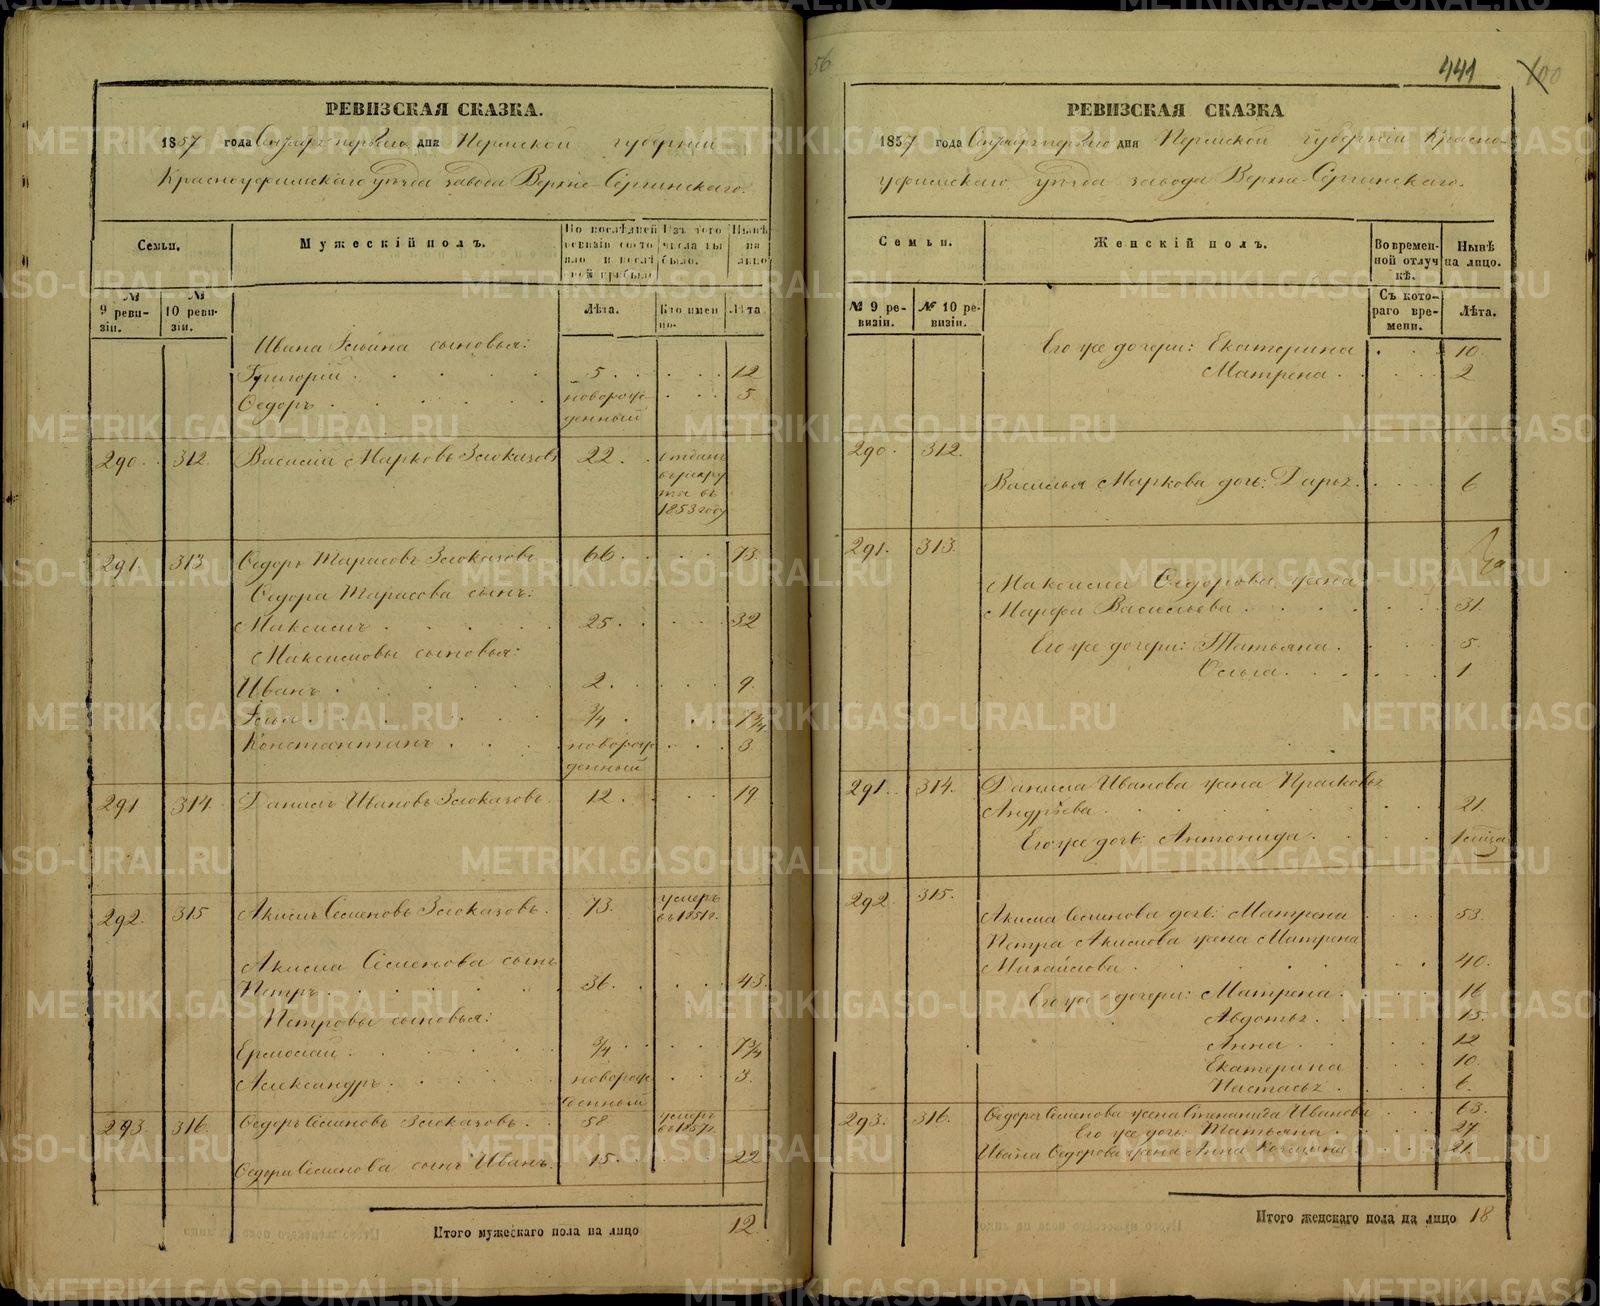 56
РЕВИЗСКАЯ СКАЗКА.
1857 года Сентября перваго дня Пермской губернии
Красноуфимскаго уѣзда завода Верхне-Сергинскаго.
Семьи.
Мужескій полъ.
По послѣдней ревизіи состояло и послѣ оной прибыло
Изъ того числа выбыло.
Нынѣ на лицо
№ 9 ревизіи.
№ 10 ревизіи.
Лѣта.
Кто именно.
Лѣта
Ивана Ильина сыновья:
Григорій 5. 12
Ѳедоръ новорожденный 5
290. 312. Василій Марковъ Злоказовъ 22. отданъ в рекруты въ 1853 году
291. 313 Ѳедоръ Тарасовъ Злоказовъ 66. 73.
Ѳедора Тарасова сынъ:
Максимъ 25. 32
Максимовы сыновья:
Иванъ 2. 9.
Илья 3/4. 7 3/4
Константинъ новорожденный 3
291 314. Данилъ Ивановъ Злоказовъ 12. 19
292. 315 Акимъ Семеновъ Злоказовъ. 73. умеръ въ 1851г.
Акима Семенова сынъ
Петръ 36. 43.
Петровы сыновья:
Ермолай 3/4 7 3/4
Александръ новорожденный 3.
293. 316. Ѳедоръ Семеновъ Злоказовъ. 58 умеръ въ 1857г.
Ѳедора Семенова сынъ Иванъ. 15. 22
Итого мужескаго пола на лицо 12.
441 100
РЕВИЗСКАЯ СКАЗКА
1857 года Сентября перваго дня Пермской губерніи Красно-
уфимскаго уѣзда завода Верхне-Сергинскаго.
Семьи.
Женскій полъ.
Во временной отлучкѣ.
Нынѣ на лицо.
№ 9 ревизіи.
№ 10 ревизіи.
Съ котораго времени.
Лѣта.
Его же дочери: Екатерина 10.
Матрена 2
290. 312. Василья Маркова дочь: Дарья. 6
291. 313.
Максима Ѳедорова жена
Марфа Васильева 31.
Его же дочери: Татьяна. 5.
Ольга. 1
291. 314. Данила Иванова жена Прасковья
Андрѣева. 21.
Его же дочь: Антонида.
292 315.
Акима Семенова дочь: Матрена 53.
Петра Акимова жена Матрена
Михайлова 40.
Его же дочери: Матрена. 16
Авдотья. 15.
Анна 12
Екатерина 10.
Настасья 6.
293. 316. Ѳедора Семенова жена Степанида Иванова 63.
Его же дочь: Татьяна 27
Ивана Ѳедорова жена Анна 21.
Итого женскаго пола на лицо 18
METRIKI.GASO-URAL.RU